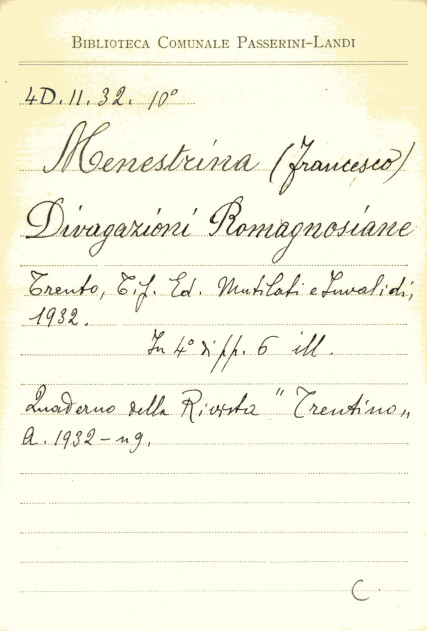 BIBLIOTECA COMUNALE PASSERINI-LANDI
4D.II.32. 10°
Menestrina (Francesco)
Divagazioni Romagnosiane
Trento, Tif. Ed. Mutilati e Invalidi,
1932.
In 4° di pp. 6 ill.
Quaderno della Rivista "Trentino"
A. 1932 - n9.
C.